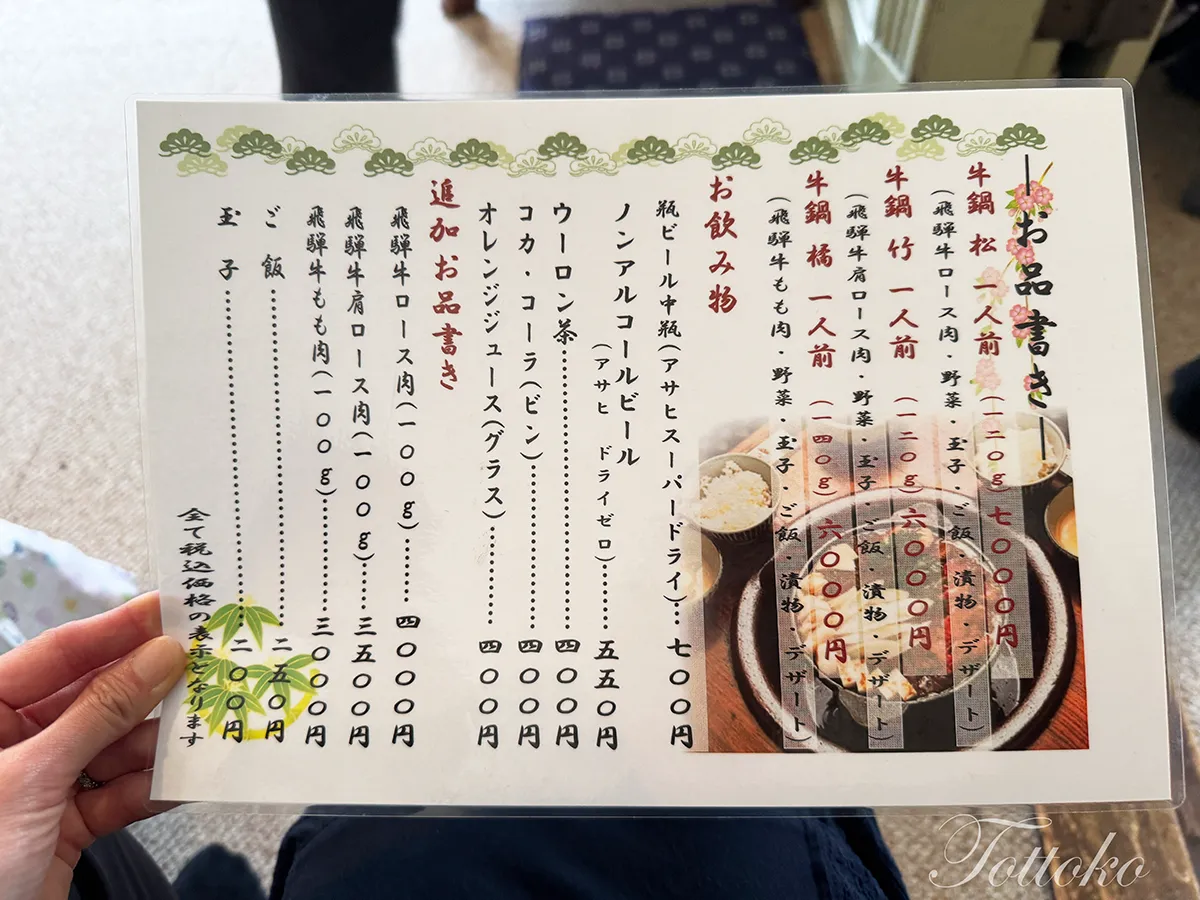 お品書き
牛鍋 松 一人前 (一二〇g) 七〇〇〇円
(飛騨牛ロース肉・野菜・玉子・ご飯・漬物・デザート)
牛鍋 竹 一人前 (一二〇g) 六〇〇〇円
(飛騨牛肩ロース肉・野菜・玉子・ご飯・漬物・デザート)
牛鍋 橘 一人前 (一四〇g) 六〇〇〇円
(飛騨牛もも肉・野菜・玉子・ご飯・漬物・デザート)
お飲み物
瓶ビール中瓶(アサヒスーパードライ)… 七〇〇円
ノンアルコールビール
(アサヒ ドライゼロ)……… 五五〇円
ウーロン茶……………………… 四〇〇円
コカ・コーラ(ビン)……………… 四〇〇円
オレンジジュース(グラス)………… 四〇〇円
追加お品書き
飛騨牛ロース肉(一〇〇g)……… 四〇〇〇円
飛騨牛肩ロース肉(一〇〇g)…… 三五〇〇円
飛騨牛もも肉(一〇〇g)………… 三〇〇〇円
ご飯……………………………… 二五〇円
玉子……………………………… 二〇〇円
全て税込価格の表示となります
Tottoko